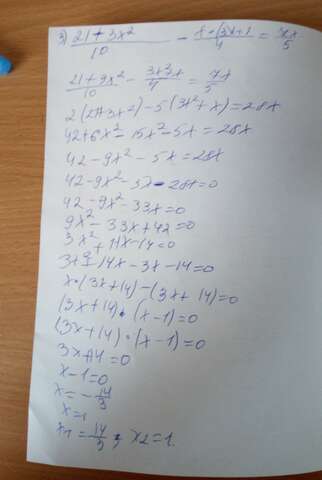 3) (21 + 3x²)/10 - (x·(3x+1))/4 = 7x/5
(21 + 9x²)/10 - (3x²+x)/4 = 7x/5
2(21+3x²)-5(3x²+x)=28x
42+6x²-15x²-5x=28x
42-9x²-5x=28x
42-9x²-5x-28x=0
42-9x²-33x=0
9x²-33x+42=0
3x²+11x-14=0
3x²+14x-3x-14=0
x·(3x+14)-(3x+14)=0
(3x+14)·(x-1)=0
(3x+14)·(x-1)=0
3x+14=0
x-1=0
x=-14/3
x=1
x1=-14/3; x2=1.